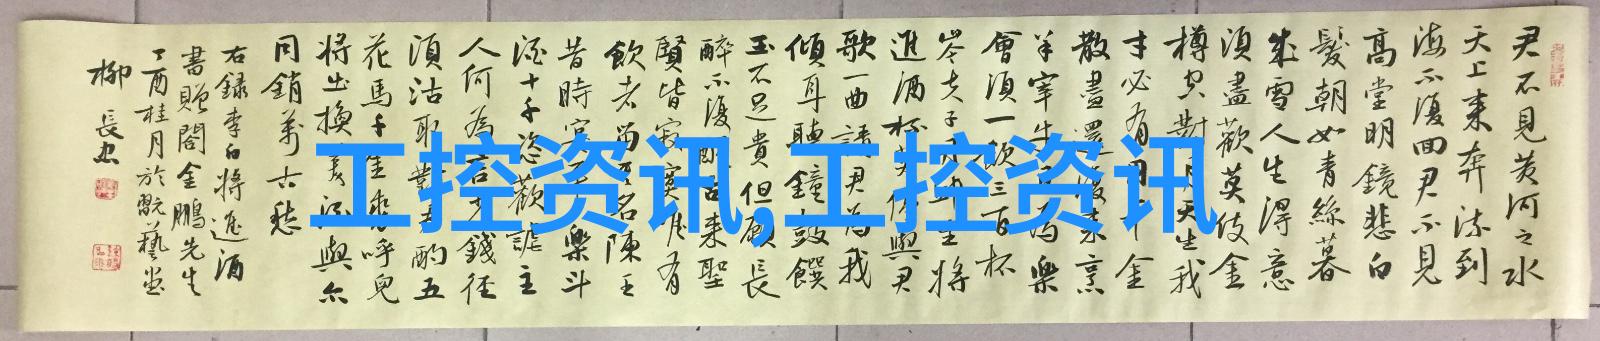 君不見黄河之水
天上来奔流到
海不復回君不見
高堂明鏡悲白
髮朝如青絲暮
成雪人生得意
須盡歡莫使金
樽空對月天生我
才必有用千金
散盡還復来烹
羊宰牛且為樂
會須一飲三百杯
岑夫子丹丘生將
進酒杯莫停與君
歌一曲請君為我
傾耳聽鐘鼓饌
玉不足貴但願長
醉不復醒古来聖
賢皆寂寞惟有
飲者留其名陳王
昔時宴平樂斗
酒十千恣歡謔主
人何為言少錢径
須沽取對君酌五
花馬千金裘呼兒
將出換美酒與尔
同銷萬古愁
右録李白將進酒
書贈閻金鵬先生
丁酉桂月於翫藝堂
柳長忠
工控资讯,工控资讯